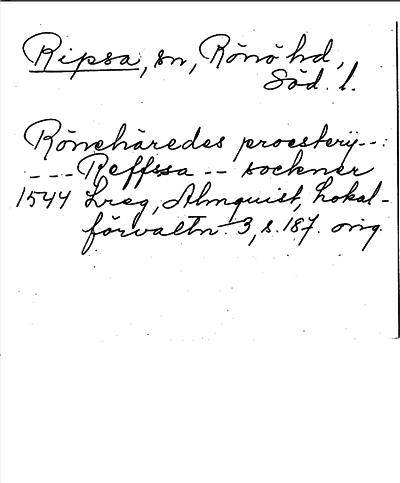 Ripsa, sn, Rönö hd,
Söd. l.
Rönehäredes proesterij--:
--- Reffssa -- sockner
1544 Lreg, Almquist, Lokal-
förvaltn. 3, s. 187. orig.